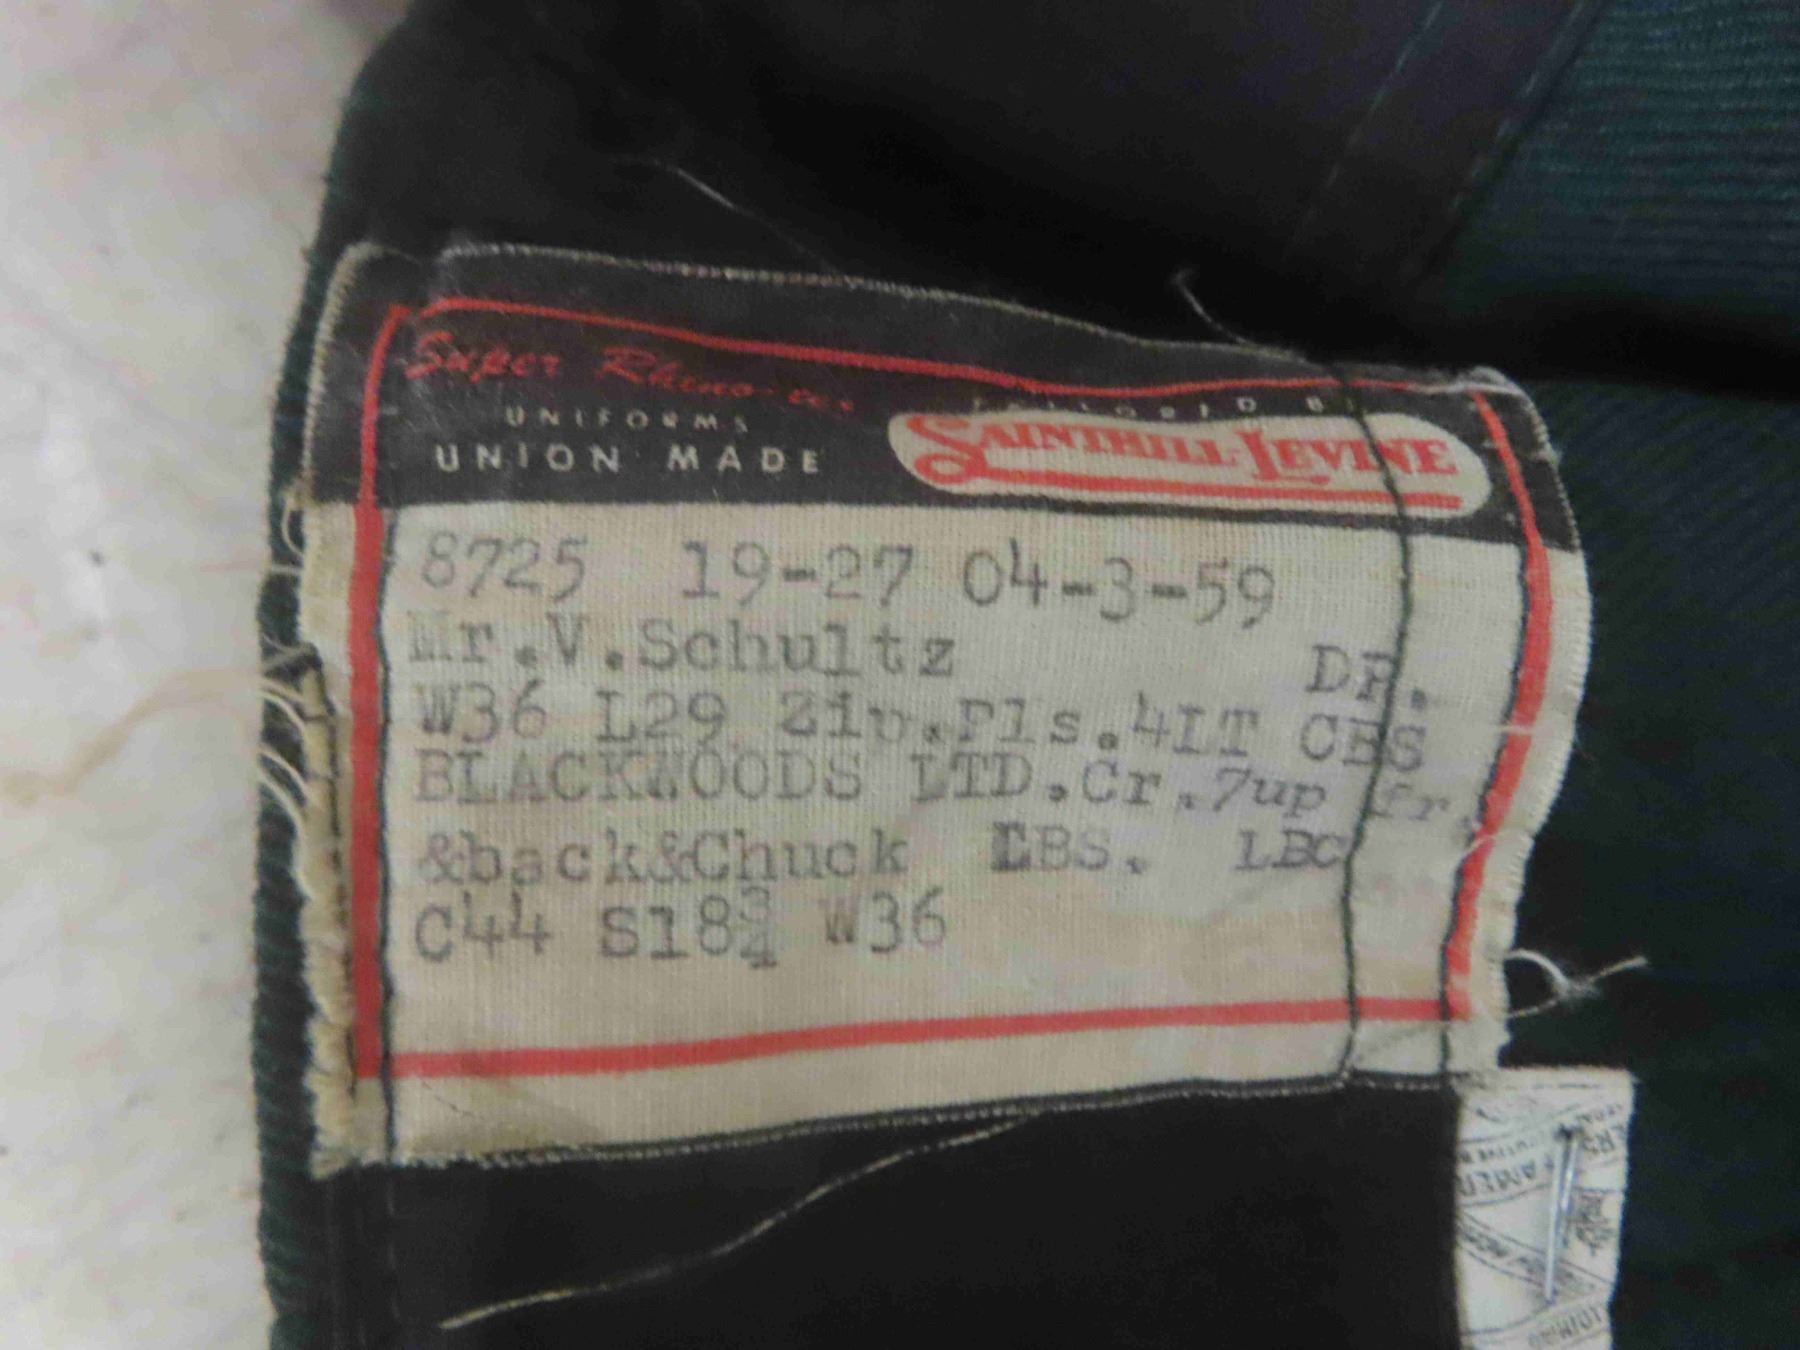 Super Rhino-cos
UNIFORMS
UNION MADE
TAILORED BY
SAINTHILL-LEVINE
8725 19-27 04-3-59
Mr.V.Schultz DP.
W36 L29 Zip.Pls.4LT CBS
BLACKWOODS LTD.Cr.7up fr.
&back&Chuck EBS. LBC
C44 S18¾ W36